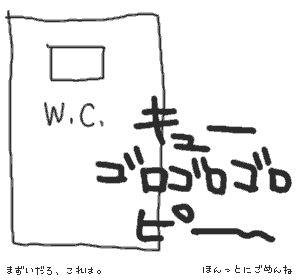 W.C.
キュー
ゴロゴロゴロ
ピ°ー〜
まずいだろ、これは。
ほんっとにごめんね